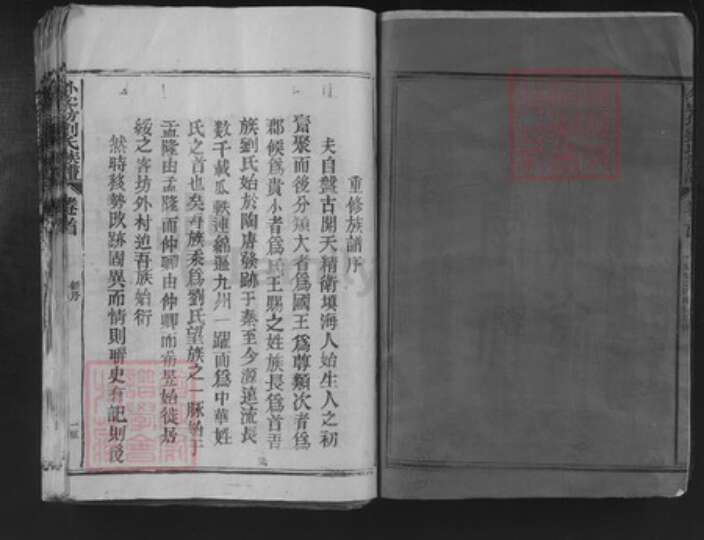 重修族譜序
夫自盤古開天精衛填海人始生人之初
齊聚而後分類大者為國王為尊類次者為
郡候為貴小者為民王賜之姓族長為首吾
族劉氏始於陶唐發跡于秦至今源遠流長
數千載瓜瓞連綿遍九州一躍而為中華姓
氏之首也矣吾族系為劉氏望族之一脉始于
孟隆由孟隆而仲卿由仲卿而希昱始徙居
綏之客坊外村迨吾族始衍
然時移勢改跡固異而情則聯史有記則後
劉氏族譜
卷首
新序